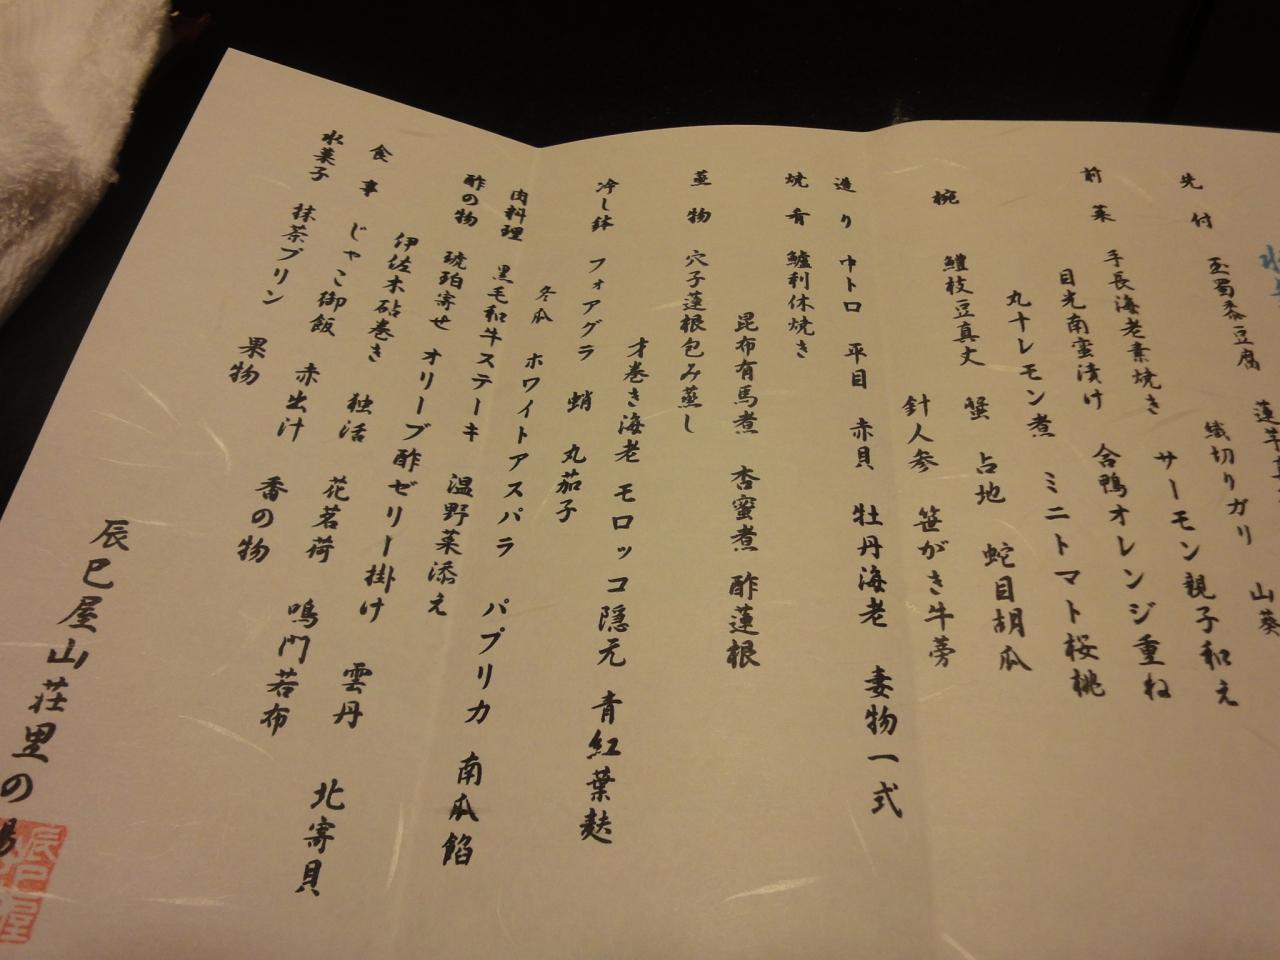 先付 玉蜀黍豆腐 蓮牛蒡
繊切りガリ 山葵
前菜 手長海老素焼き サーモン親子和え
目光南蛮漬け 合鴨オレンジ重ね
丸十レモン煮 ミニトマト桜桃
椀 鱧枝豆真丈 蟹 占地 蛇目胡瓜
針人参 笹がき牛蒡
造り 中トロ 平目 赤貝 牡丹海老 妻物一式
焼肴 鱸利休焼き
昆布有馬煮 杏蜜煮 酢蓮根
蒸物 穴子蓮根包み蒸し
才巻き海老 モロッコ隠元 青紅葉麩
冷し鉢 フォアグラ 蛸 丸茄子
冬瓜 ホワイトアスパラ パプリカ 南瓜餡
肉料理 黒毛和牛ステーキ 温野菜添え
酢の物 琥珀寄せ オリーブ酢ゼリー掛け
伊佐木砧巻き 独活 花茗荷 雲丹 北寄貝
食事 じゃこ御飯 赤出汁 香の物 鳴門若布
水菓子 抹茶プリン 果物
辰巳屋山荘里の湯
辰巳屋